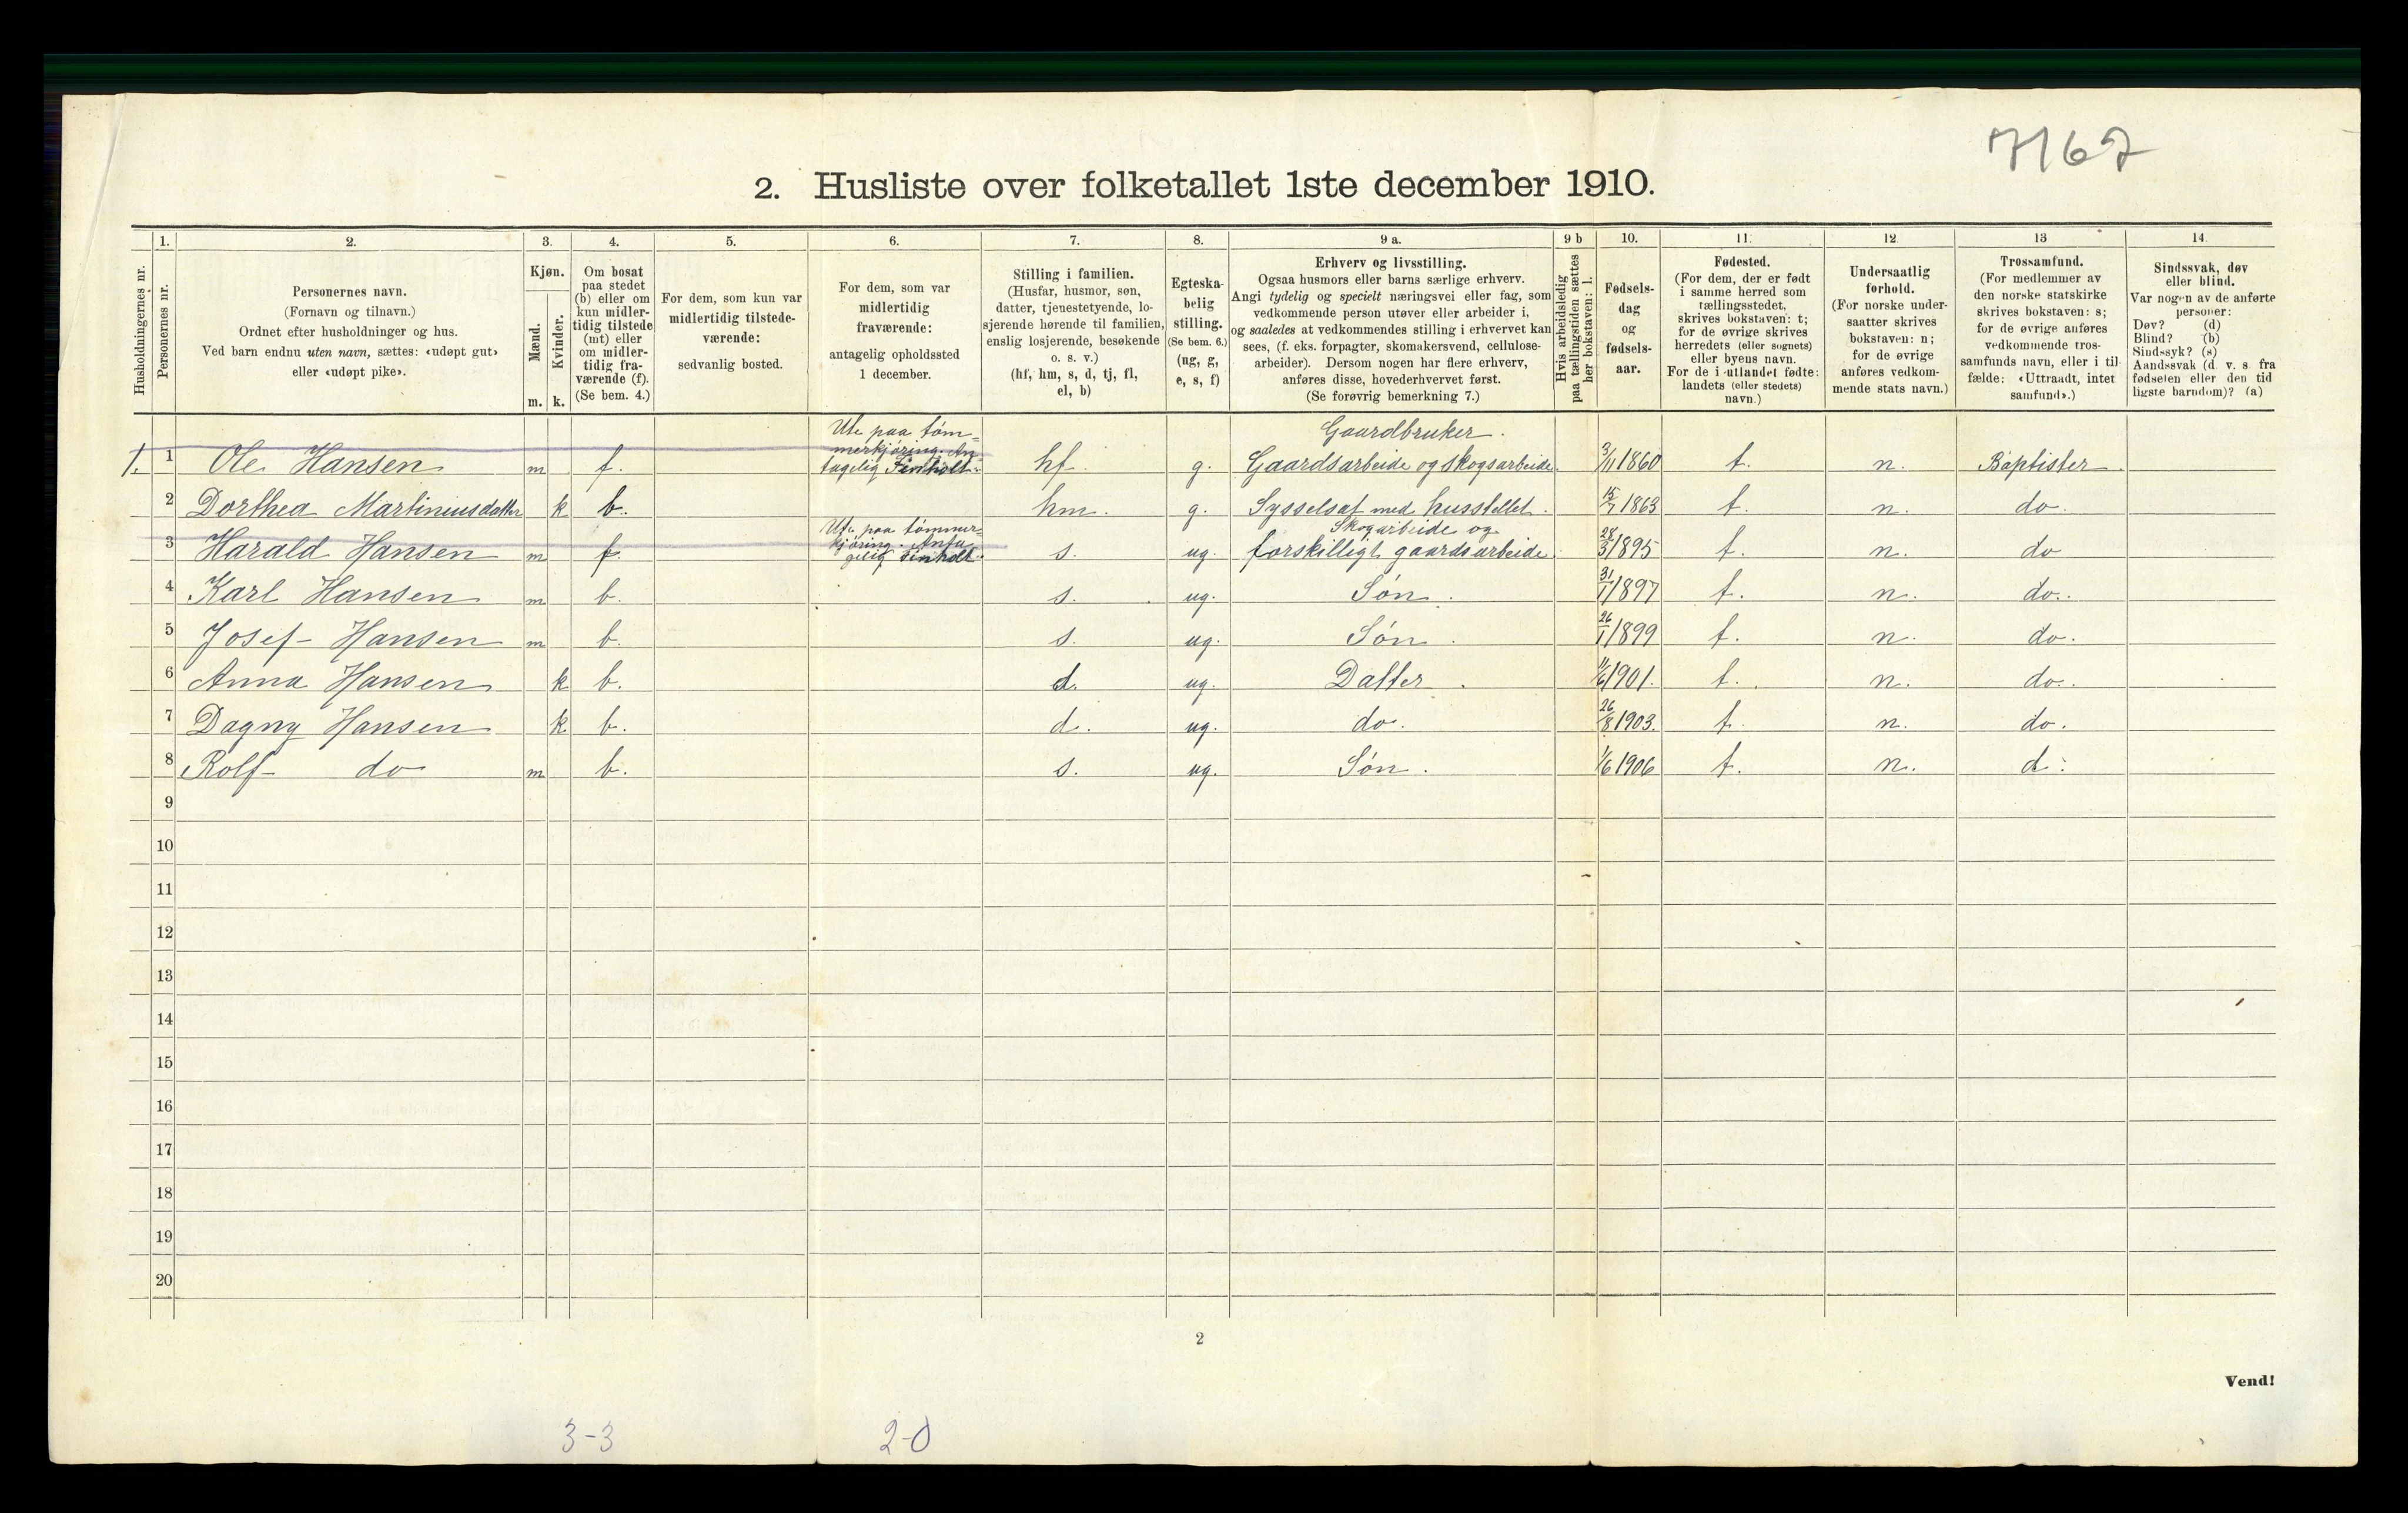 7167
2. Husliste over folketallet 1ste december 1910.
Husholdningernes nr.
1. Personernes nr.
2. Personernes navn.
(Fornavn og tilnavn.)
Ordnet efter husholdninger og hus.
Ved barn endnu uten navn, sættes: «udøpt gut»
eller «udøpt pike».
3. Kjøn.
Mænd. m.
Kvinder. k.
4. Om bosat
paa stedet
(b) eller om
kun midler-
tidig tilstede
(mt) eller
om midler-
tidig fra-
værende (f).
(Se bem. 4.)
5. For dem, som kun var
midlertidig tilstede-
værende:
sedvanlig bosted.
6. For dem, som var
midlertidig
fraværende:
antagelig opholdssted
1 december.
7. Stilling i familien.
(Husfar, husmor, søn,
datter, tjenestetyende, lo-
sjerende hørende til familien,
enslig losjerende, besøkende
o. s. v.)
(hf, hm, s, d, tj, fl,
el, b)
8. Egteska-
belig
stilling.
(Se bem. 6.)
(ug, g,
e, s, f)
9 a. Erhverv og livsstilling.
Ogsaa husmors eller barns særlige erhverv.
Angi tydelig og specielt næringsvei eller fag, som
vedkommende person utøver eller arbeider i,
og saaledes at vedkommendes stilling i erhvervet kan
sees, (f. eks. forpagter, skomakersvend, cellulose-
arbeider). Dersom nogen har flere erhverv,
anføres disse, hovederhvervet først.
(Se forøvrig bemerkning 7.)
9 b Hvis arbeidsledig
paa tællingstiden sættes
her bokstaven: l.
10. Fødsels-
dag
og
fødsels-
aar.
11. Fødested.
(For dem, der er født
i samme herred som
tællingsstedet,
skrives bokstaven: t;
for de øvrige skrives
herredets (eller sognets)
eller byens navn.
For de i utlandet fødte:
landets (eller stedets)
navn.)
12 Undersaatlig
forhold.
(For norske under-
saatter skrives
bokstaven: n;
for de øvrige
anføres vedkom-
mende stats navn.)
13 Trossamfund.
(For medlemmer av
den norske statskirke
skrives bokstaven: s;
for de øvrige anføres
vedkommende tros-
samfunds navn, eller i til-
fælde: «Uttraadt, intet
samfund».)
14. Sindssvak, døv
eller blind.
Var nogen av de anførte
personer:
Døv? (d)
Blind? (b)
Sindssyk? (s)
Aandssvak (d. v. s. fra
fødselen eller den tid
ligste barndom)? (a)
1. 1 Ole Hansen m f. Ute paa tøm=
merkjøring. An
tagelig Finholt. hf. g. Gaardbruker.
Gaardsarbeide og skogsarbeide. 3/11 1860 t. n. Baptister.
2 Dorthea Martiniusdatter k b. hm. g. Sysselsat med husstellet. 15/7 1863 t. n. do.
3 Harald Hansen m f. Ute paa tømmer
kjøring. Anta
gelig Finholt. s. ug. Skogarbeide og
forskilligt gaardsarbeide. 28/3 1895 t. n. do
4 Karl Hansen m b. s. ug. Søn. 31/1 1897 t. n. do.
5 Josef Hansen m b. s. ug. Søn. 26/1 1899 t. n. do.
6 Anna Hansen k b. d. ug. Datter. 11/6 1901. t. n. do.
7 Dagny Hansen k b. d. ug. do. 26/8 1903. t. n. do.
8 Rolf do m b. s. ug. Søn. 1/6 1906 t. n. d.
9
10
11
12
13
14
15
16
17
18
19
20
2
Vend!
3-3 2-0